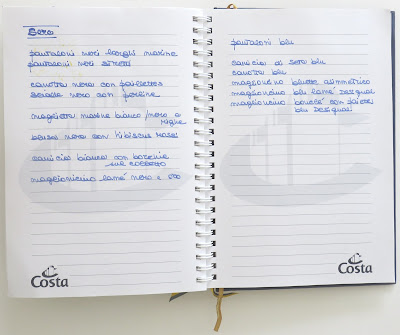 Sera
pantaloni neri larghi marina
pantaloni neri stretti
canotta nera con paillettes
scialle nero con perline
maglietta marina bianco nero a
righe
blusa nera con hibiscus rossi
camicia bianca con borchie
sul colletto
maglioncino lamé nero e oro
Costa
pantaloni blu
camicia di seta blu
canotta blu
maglioncino bluette asimmetrico
maglioncino blu lamé desigual
maglioncino bouclé con paietes
blu desigual
Costa